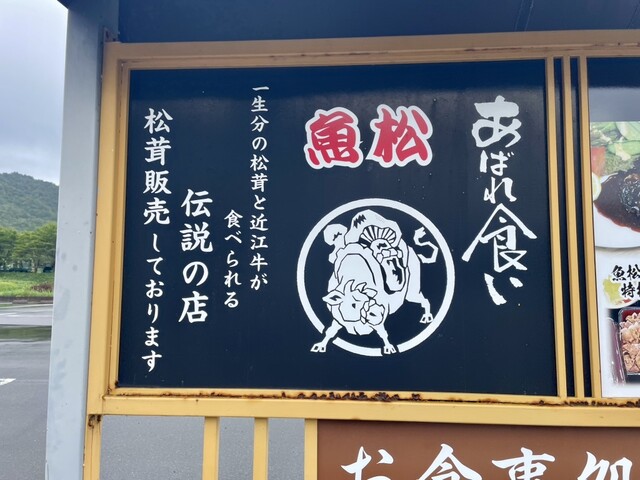 あばれ食い
魚松
一生分の松茸と近江牛が
食べられる
伝説の店
松茸販売しております
魚松
お食事処